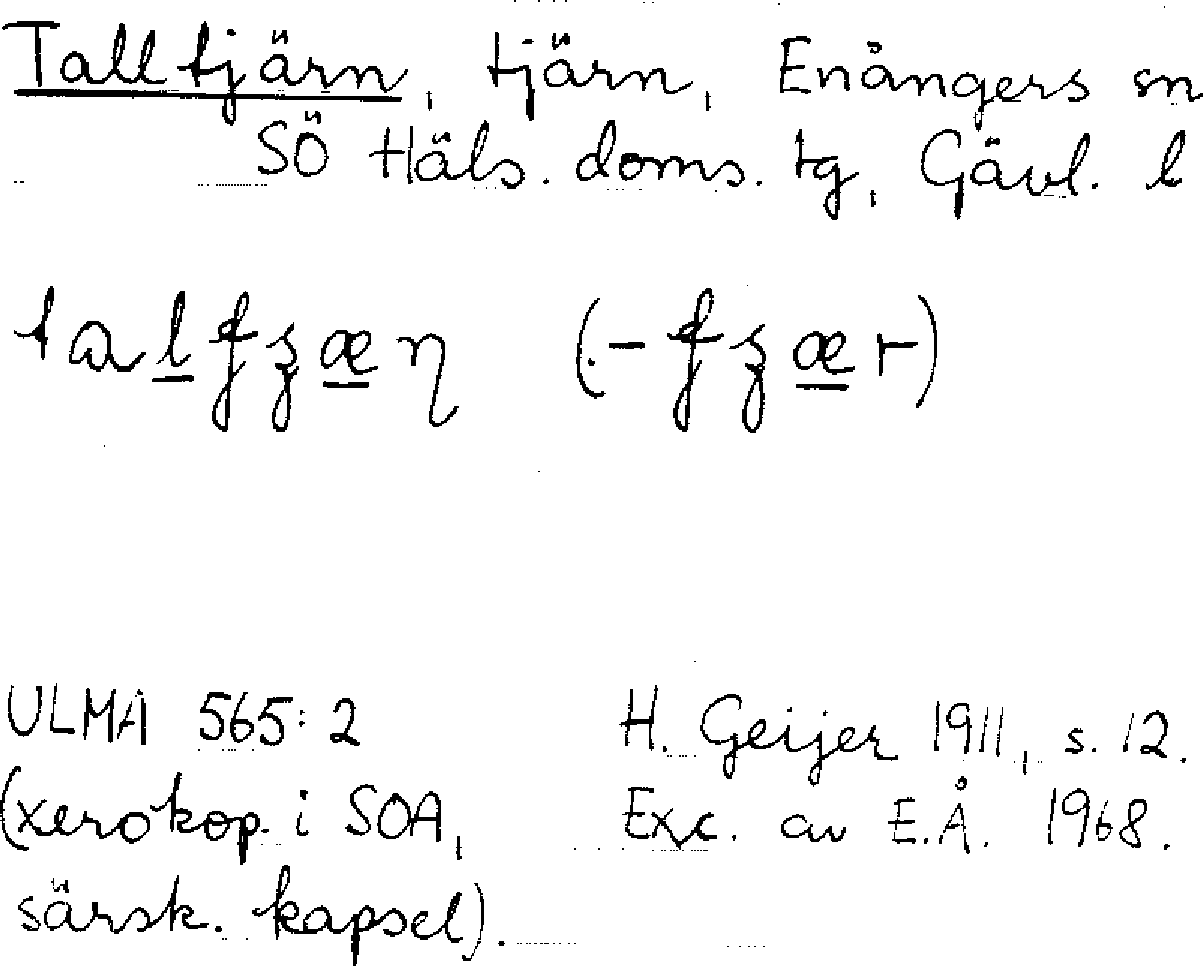 Talltjärn, tjärn, Enångers sn
SÖ Häls. doms. tg, Gävl. l
ULMA 565:2 H. Geijer 1911, s. 12.
(xerokop. i SOA, Exc. av E.Å. 1968.
särsk. kapsel).